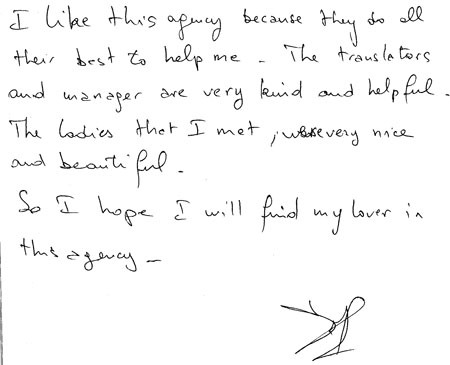 I like this agency because they do all
their best to help me - The translators
and manager are very kind and helpful.
The ladies that I met, were very nice
and beautiful.
So I hope I will find my lover in
this agency -